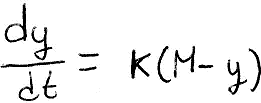 dy/dt = K(M-y)